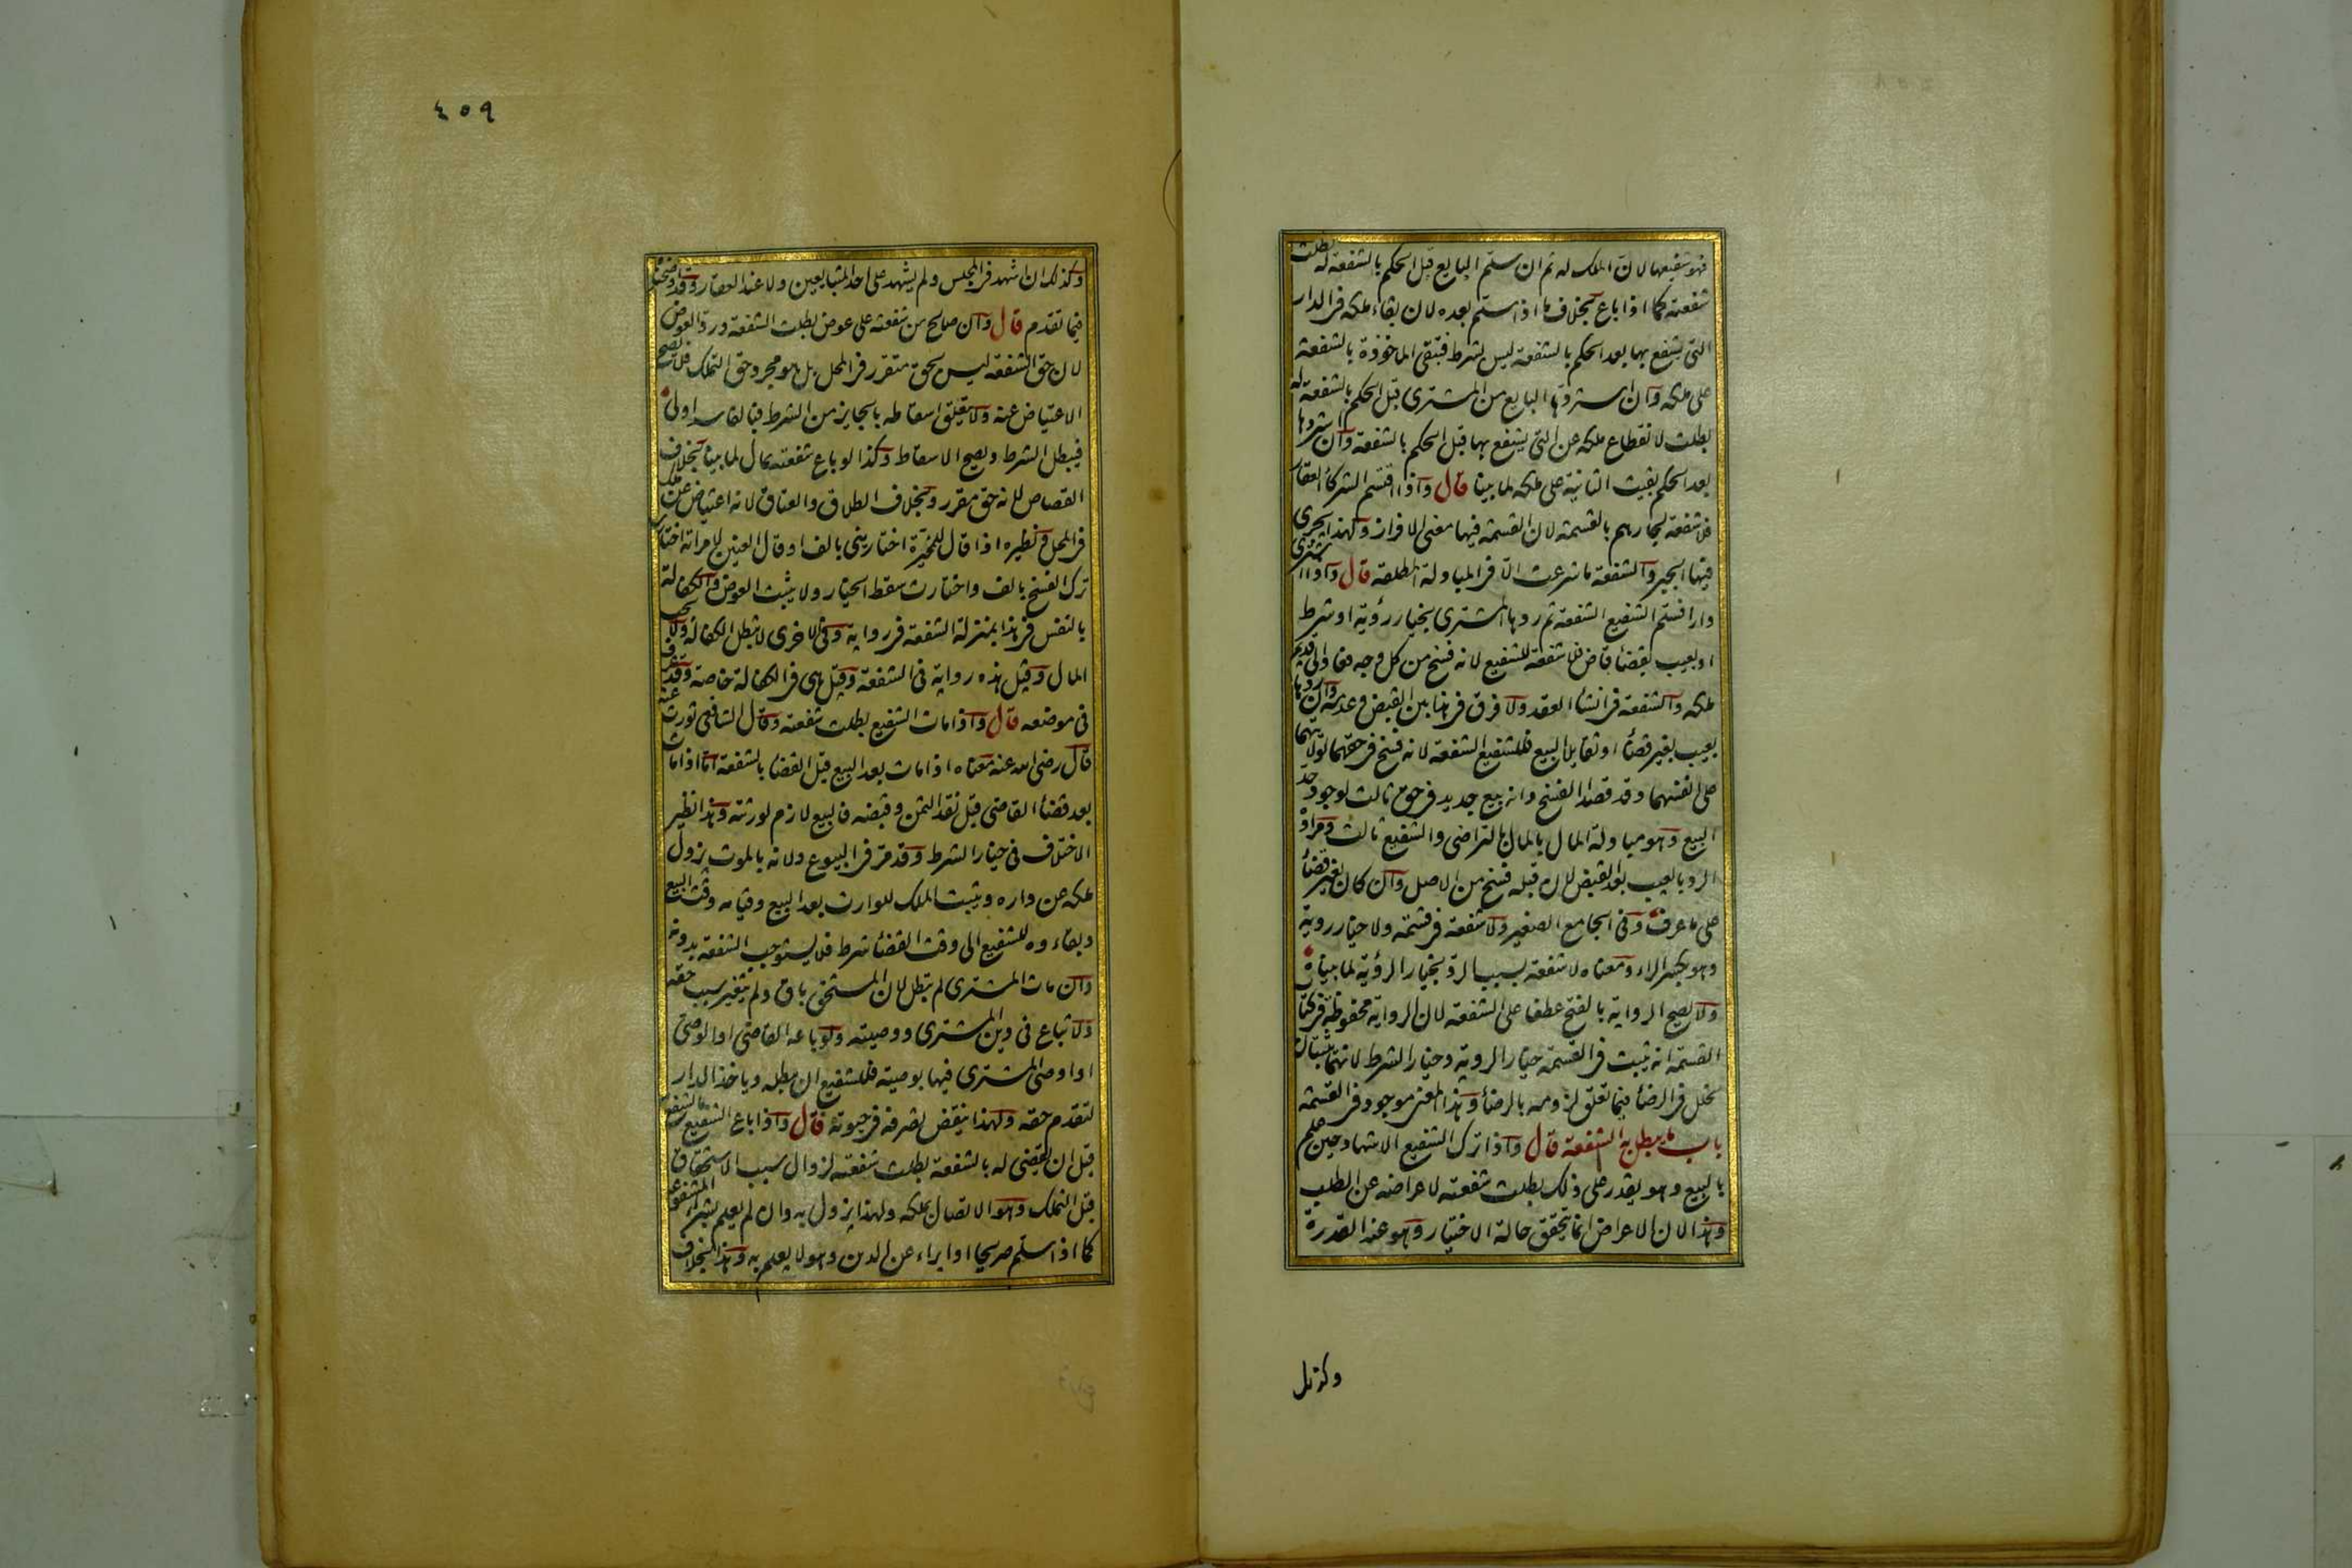 فهو شفيعها لان الملك له ثم ان سلم البايع قبل الحكم بالشفعة له بطلت
شفعته كما اذا باع بخلاف ما اذا سلم بعده لان بقاء ملكه فى الدار
التى يشفع بها بعد الحكم بالشفعة ليس بشرط فتبقى الماخوذة بالشفعة
على ملكه وان استردها البايع من المشترى قبل الحكم بالشفعة له
بطلت لانقطاع ملكه عن التى يشفع بها قبل الحكم بالشفعة وان استردها
بعد الحكم بقيت الثانية على ملكه لما بينا قال واذا اقتسم الشركاء العقار
فلا شفعة لجارهم بالقسمة لان القسمة فيها معنى الافراز ولهذا يجرى
فيها الجبر والشفعة ما شرعت الا فى المبادلة المطلقة قال واذا اشترى
دارا فسلم الشفيع الشفعة ثم ردها المشترى بخيار رؤية او شرط
او بعيب بقضاء قاض فلا شفعة للشفيع لانه فسخ من كل وجه فعاد الى قديم
ملكه والشفعة فى انشاء العقد ولا فرق فى هذا بين القبض وعدمه وان ردها
بعيب بغير قضاء او تقايلا البيع فللشفيع الشفعة لانه فسخ فى حقهما لولايتهما
على انفسهما وقد قصدا الفسخ وانه بيع جديد فى حق ثالث لوجود حد
البيع وهو مبادلة المال بالمال بالتراضى والشفيع ثالث ومراده
الرد بالعيب بعد القبض لان قبله فسخ من الاصل وان كان بغير قضاء
على ما عرف وفى الجامع الصغير ولا شفعة فى قسمة ولا خيار روية
وهو بكسر الراء ومعناه لا شفعة بسبب الرد بخيار الرؤية لما بيناه
ولا تصح الرواية بالفتح عطفا على الشفعة لان الرواية محفوظة فى كتاب
القسمة انه يثبت فى القسمة خيار الروية وخيار الشرط لانهما يثبتان
لخلل فى الرضا فيما تعلق لزومه بالرضا وهذا المعنى موجود فى القسمة
باب ما يبطل به الشفعة قال واذا ترك الشفيع الاشهاد حين علم
بالبيع وهو يقدر على ذلك بطلت شفعته لاعراضه عن الطلب
وهذا لان الاعراض انما يتحقق حالة الاختيار وهو عند القدرة
وكذلك
٤٥٩
وكذلك ان اشهد فى المجلس ولم يشهد على احد المتبايعين ولا عند العقار وقد اوضحناه
فيما تقدم قال وان صالح من شفعته على عوض بطلت الشفعة ورد العوض
لان حق الشفعة ليس بحق متقرر فى المحل بل هو مجرد حق التملك فلا يصح
الاعتياض عنه ولا يتعلق اسقاطه بالجايز من الشرط فبالفاسد اولى
فيبطل الشرط ويصح الاسقاط وكذا لو باع شفعته بمال لما بينا بخلاف
القصاص لانه حق مقرر وبخلاف الطلاق والعتاق لانه اعتياض عن ملك
فى المحل ونظيره اذا قال للمخيرة اختارينى بالف او قال العنين لامراته اختارى
ترك الفسخ بالف واختارت سقط الخيار ولا يثبت العوض والكفالة
بالنفس فى هذا بمنزلة الشفعة فى رواية وفى الاخرى لا تبطل الكفالة ولا يجب
المال وقيل هذه رواية فى الشفعة وقيل هى فى الكفالة خاصة وقد عرف
فى موضعه قال واذا مات الشفيع بطلت شفعته وقال الشافعى تورث عنه
قال رضى الله عنه معناه اذا مات بعد البيع قبل القضاء بالشفعة اما اذا مات
بعد قضاء القاضى قبل نقد الثمن وقبضه فالبيع لازم لورثته وهذا نظير
الاختلاف فى خيار الشرط وقد مر فى البيوع ولانه بالموت يزول
ملكه عن داره ويثبت الملك للوارث بعد البيع وقيامه وقت البيع
وبقاءوه للشفيع الى وقت القضاء شرط فلا يستوجب الشفعة بدونه
وان مات المشترى لم تبطل لان المستحق باق ولم يتغير سبب حقه
ولا تباع فى دين المشترى ووصيته ولو باعه القاضى او الوصى
او اوصى المشترى فيها بوصية فللشفيع ان يبطله وياخذ الدار
لتقدم حقه ولهذا ينقض تصرفه فى حيوته قال واذا باع الشفيع ما يشفع به
قبل ان يقضى له بالشفعة بطلت شفعته لزوال سبب الاستحقاق
قبل التملك وهو الاتصال بملكه ولهذا يزول به وان لم يعلم بشراء المشفوعة
كما اذا سلم صريحا او ابراء عن الدين وهو لا يعلم به وهذا بخلاف